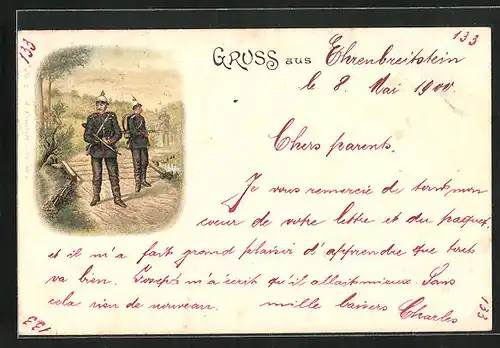 133
133
GRUSS aus Ehrenbreitstein
le 8. Mai 1900
Chers parents.
Je vous remercie de tout mon
coeur de votre lettre et du paquet,
et il m'a fait grand plaisir d'apprendre que tout
va bien. Joseph m'a écrit qu'il allait mieux. Sans
cela rien de nouveau. mille baisers Charles
133
133